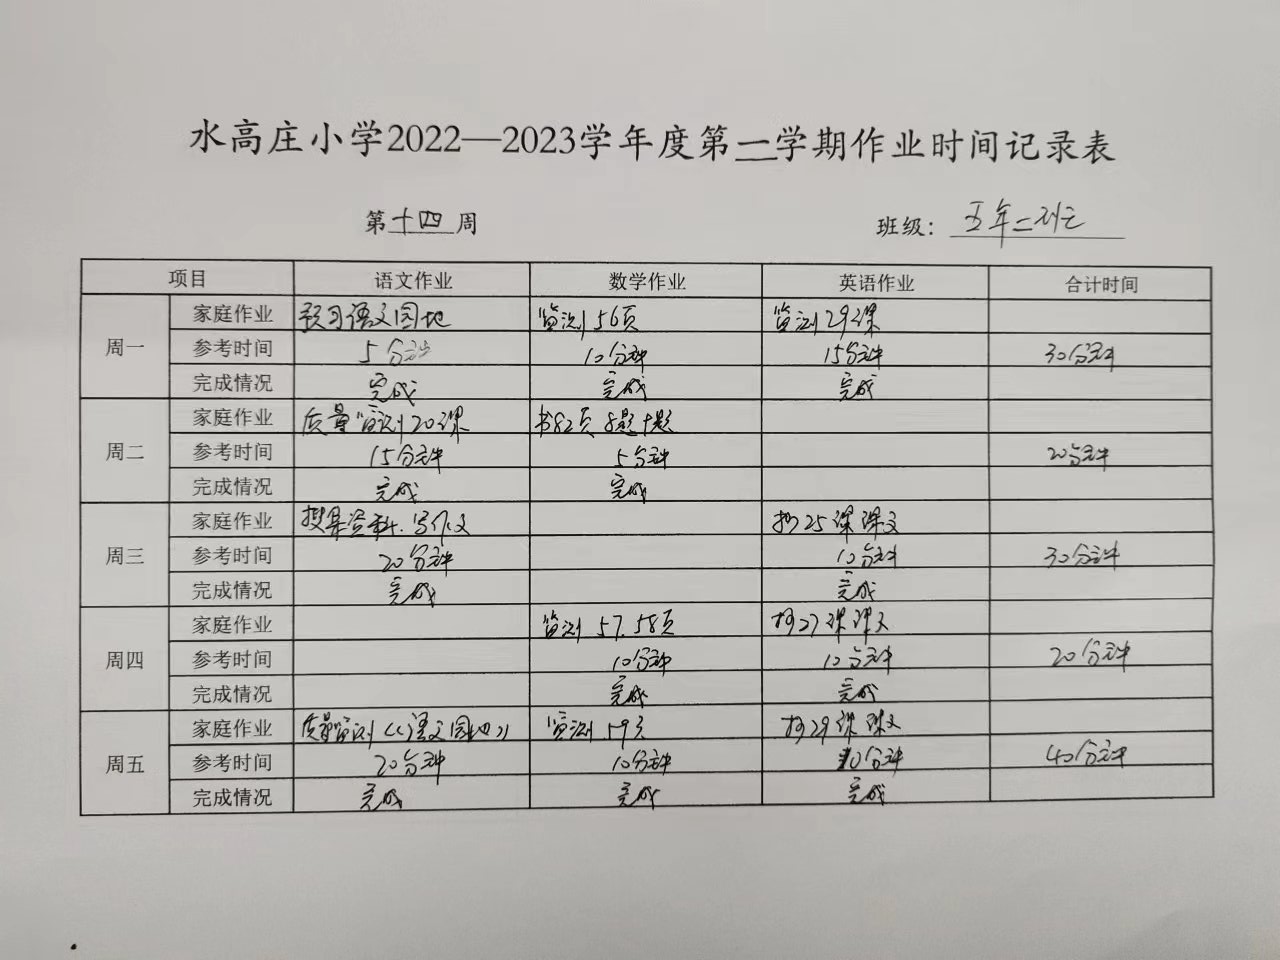 水高庄小学2022—2023学年度第一学期作业时间记录表
第十四周 班级：五年二班
项目 语文作业 数学作业 英语作业 合计时间
周一 家庭作业 预习语文园地 监测56页 监测29课
参考时间 5分钟 10分钟 15分钟 30分钟
完成情况 完成 完成 完成
周二 家庭作业 质量监测20课 书82页8题9题
参考时间 15分钟 5分钟 20分钟
完成情况 完成 完成
周三 家庭作业 搜集资料.写作文 抄25课课文
参考时间 20分钟 10分钟 30分钟
完成情况 完成 完成
周四 家庭作业 监测57.58页 抄27课课文
参考时间 10分钟 10分钟 20分钟
完成情况 完成 完成
周五 家庭作业 质量监测《语文园地》 监测59页 抄29课课文
参考时间 20分钟 10分钟 10分钟 40分钟
完成情况 完成 完成 完成